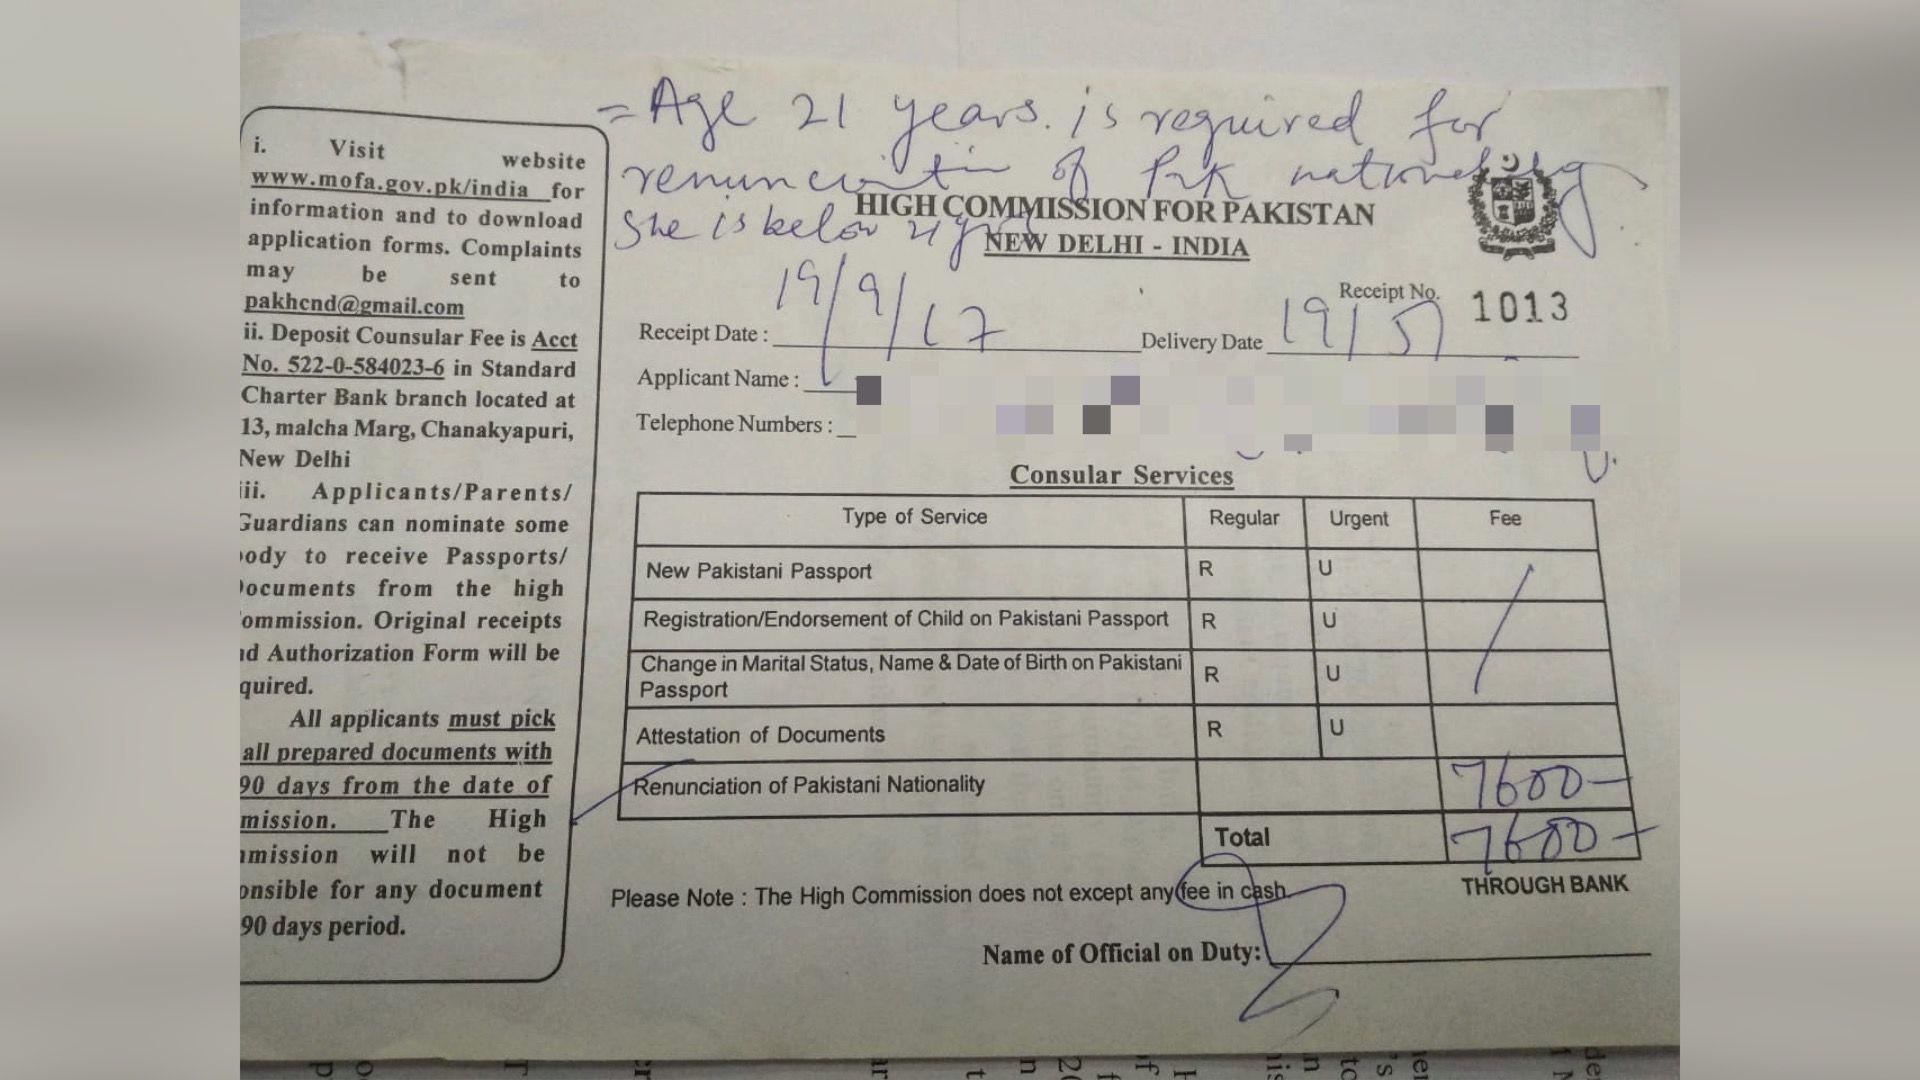 = Age 21 years. is required for
renunciation of Pak nationality
She is below 21 yrs
i. Visit website
www.mofa.gov.pk/india for
information and to download
application forms. Complaints
may be sent to
pakhcnd@gmail.com
ii. Deposit Counsular Fee is Acct
No. 522-0-584023-6 in Standard
Charter Bank branch located at
13, malcha Marg, Chanakyapuri,
New Delhi
iii. Applicants/Parents/
Guardians can nominate some
body to receive Passports/
Documents from the high
ommission. Original receipts
nd Authorization Form will be
quired.
All applicants must pick
all prepared documents with
90 days from the date of
mission. The High
mmission will not be
onsible for any document
90 days period.
HIGH COMMISSION FOR PAKISTAN
NEW DELHI - INDIA
Receipt No. 1013
Receipt Date : 19/9/17 Delivery Date 19/5
Applicant Name :
Telephone Numbers :
Consular Services
Type of Service Regular Urgent Fee
New Pakistani Passport R U
Registration/Endorsement of Child on Pakistani Passport R U
Change in Marital Status, Name & Date of Birth on Pakistani
Passport R U
Attestation of Documents R U
Renunciation of Pakistani Nationality 7600-
Total 7600-
Please Note : The High Commission does not except any fee in cash.
THROUGH BANK
Name of Official on Duty: